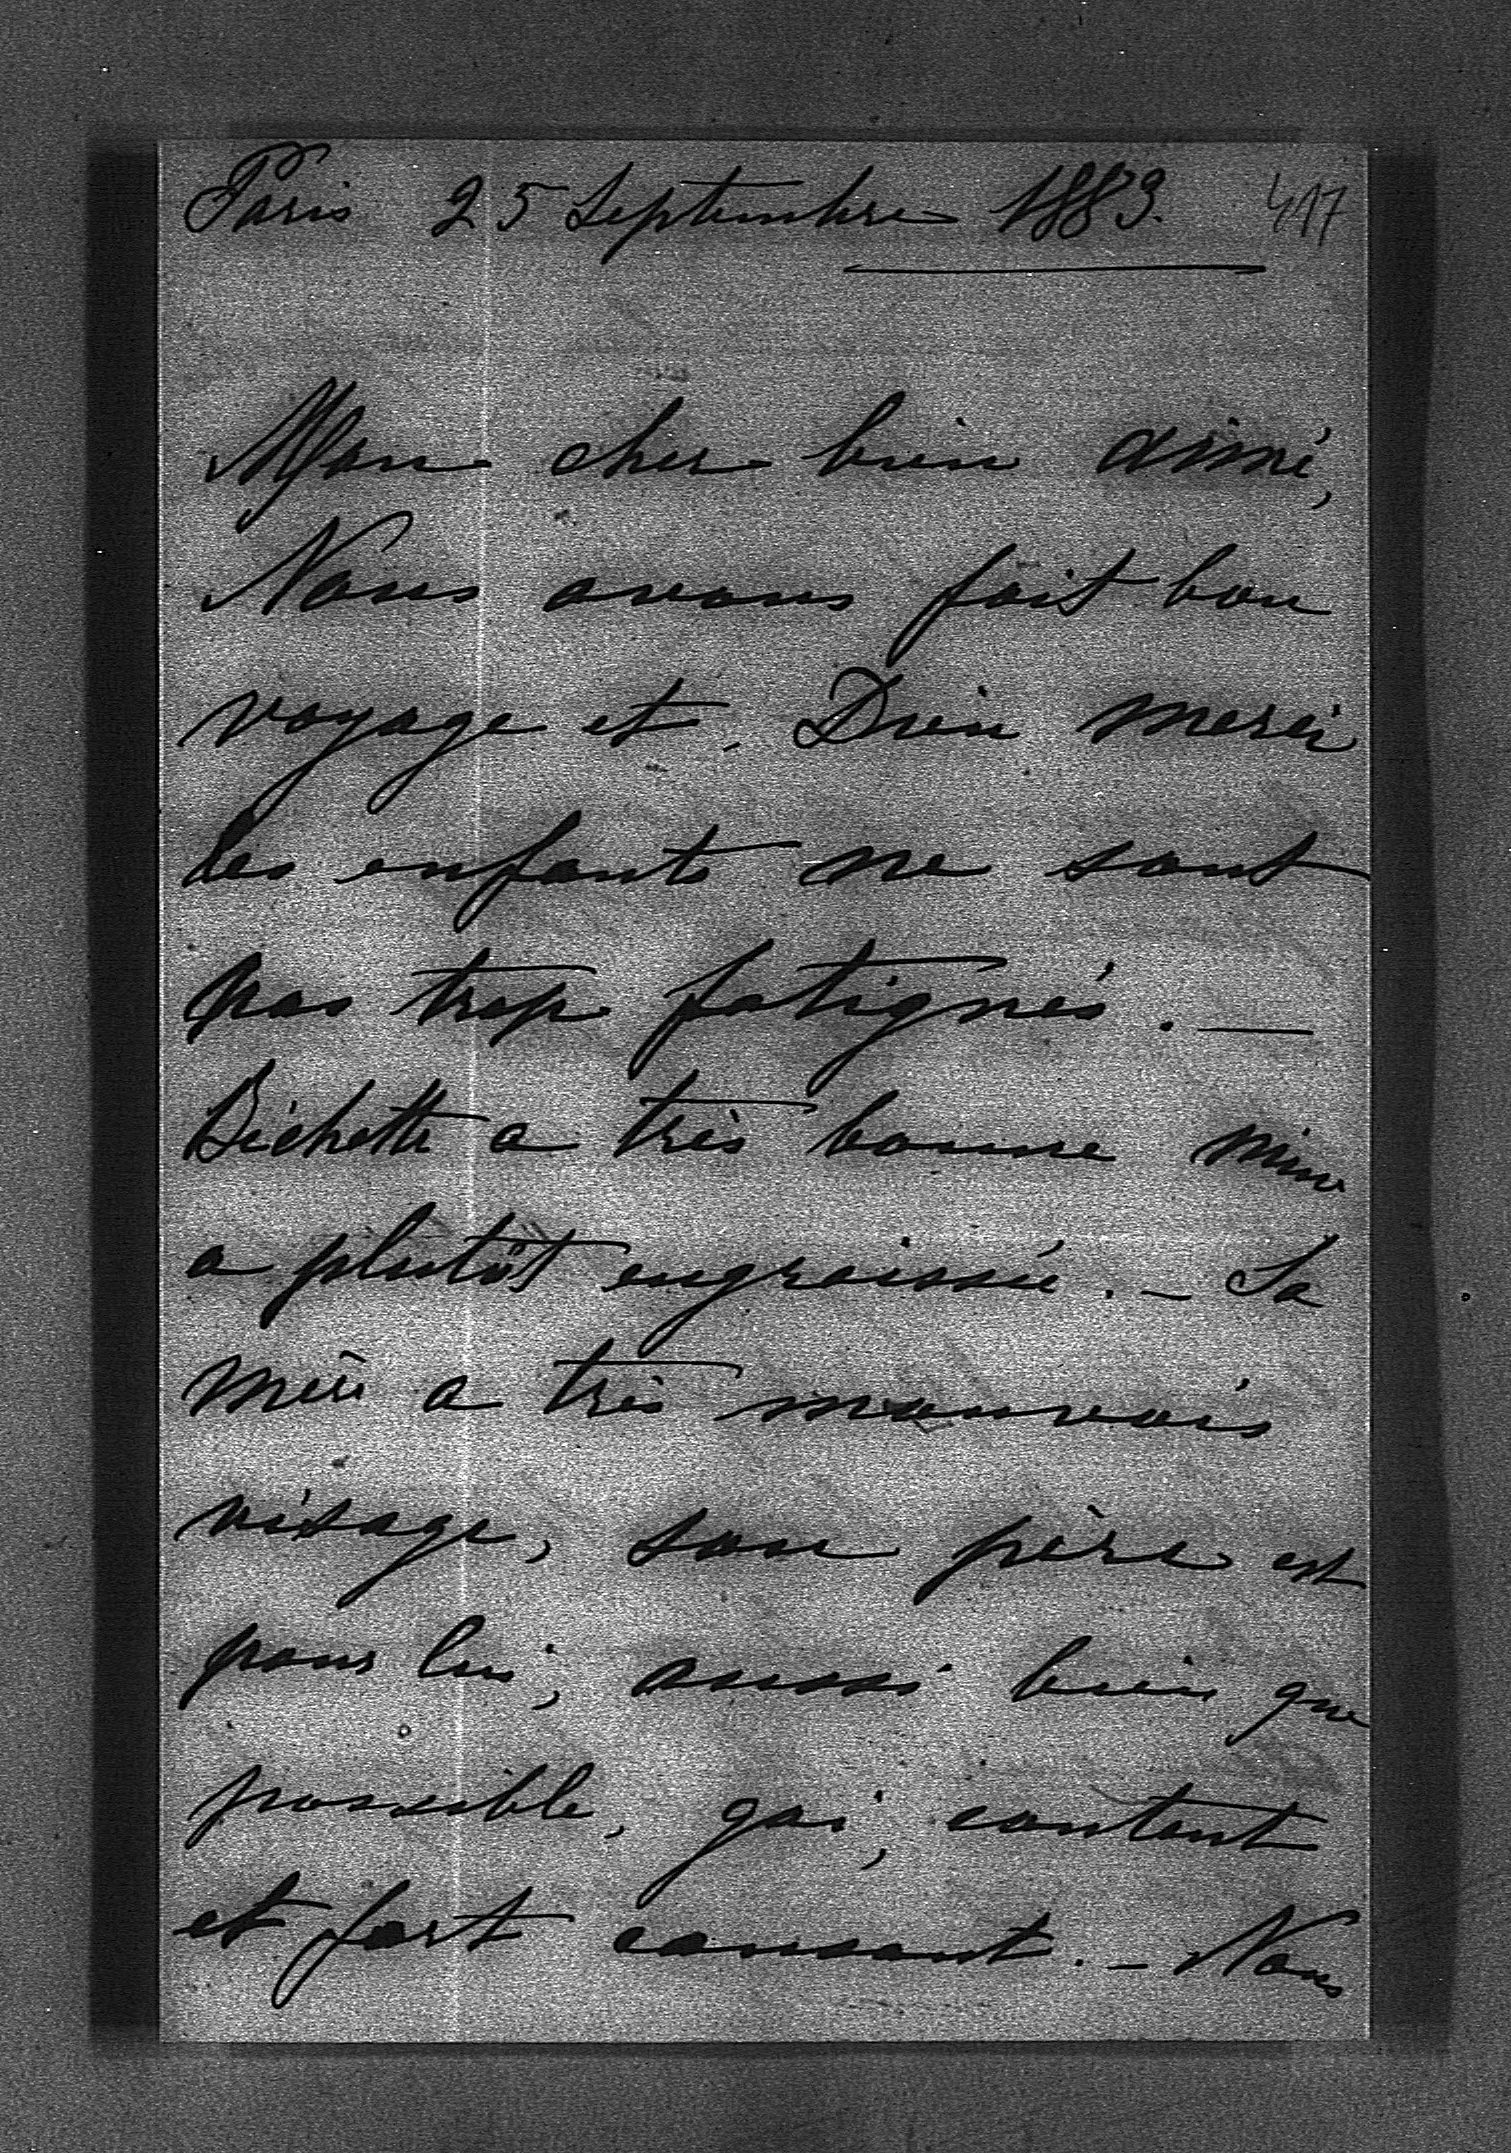 Paris 25 Septembre 1883. 417
Mon cher bien aimé,
Nous avons fait bon
voyage et, Dieu merci
les enfants ne sont
pas trop fatigués. —
Bichette a très bonne mine
a plutôt engraissée. — Sa
mère a très mauvais
visage, son père est
pour lui, aussi bien que
possible, gai, content
et fort causant. — Nous